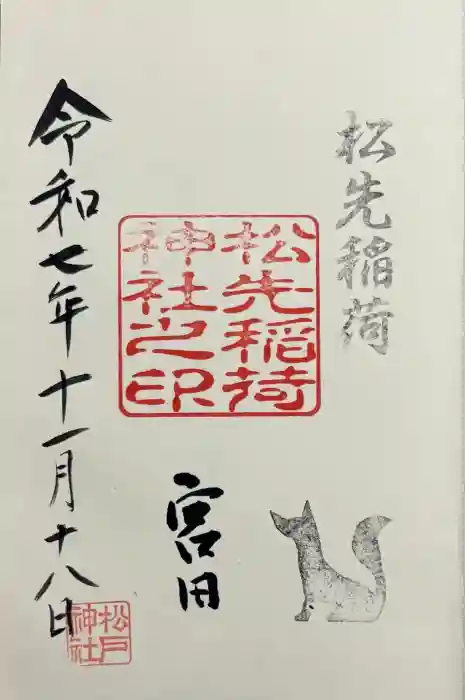 松先稲荷
松先稲荷
神社之印
宮田
令和七年十一月十八日
松戸
神社